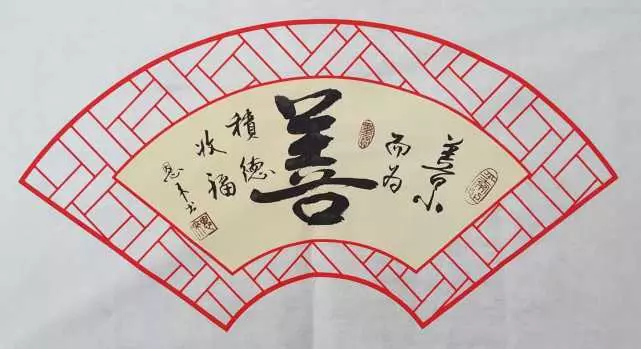 善果
而为
善
積德
收福